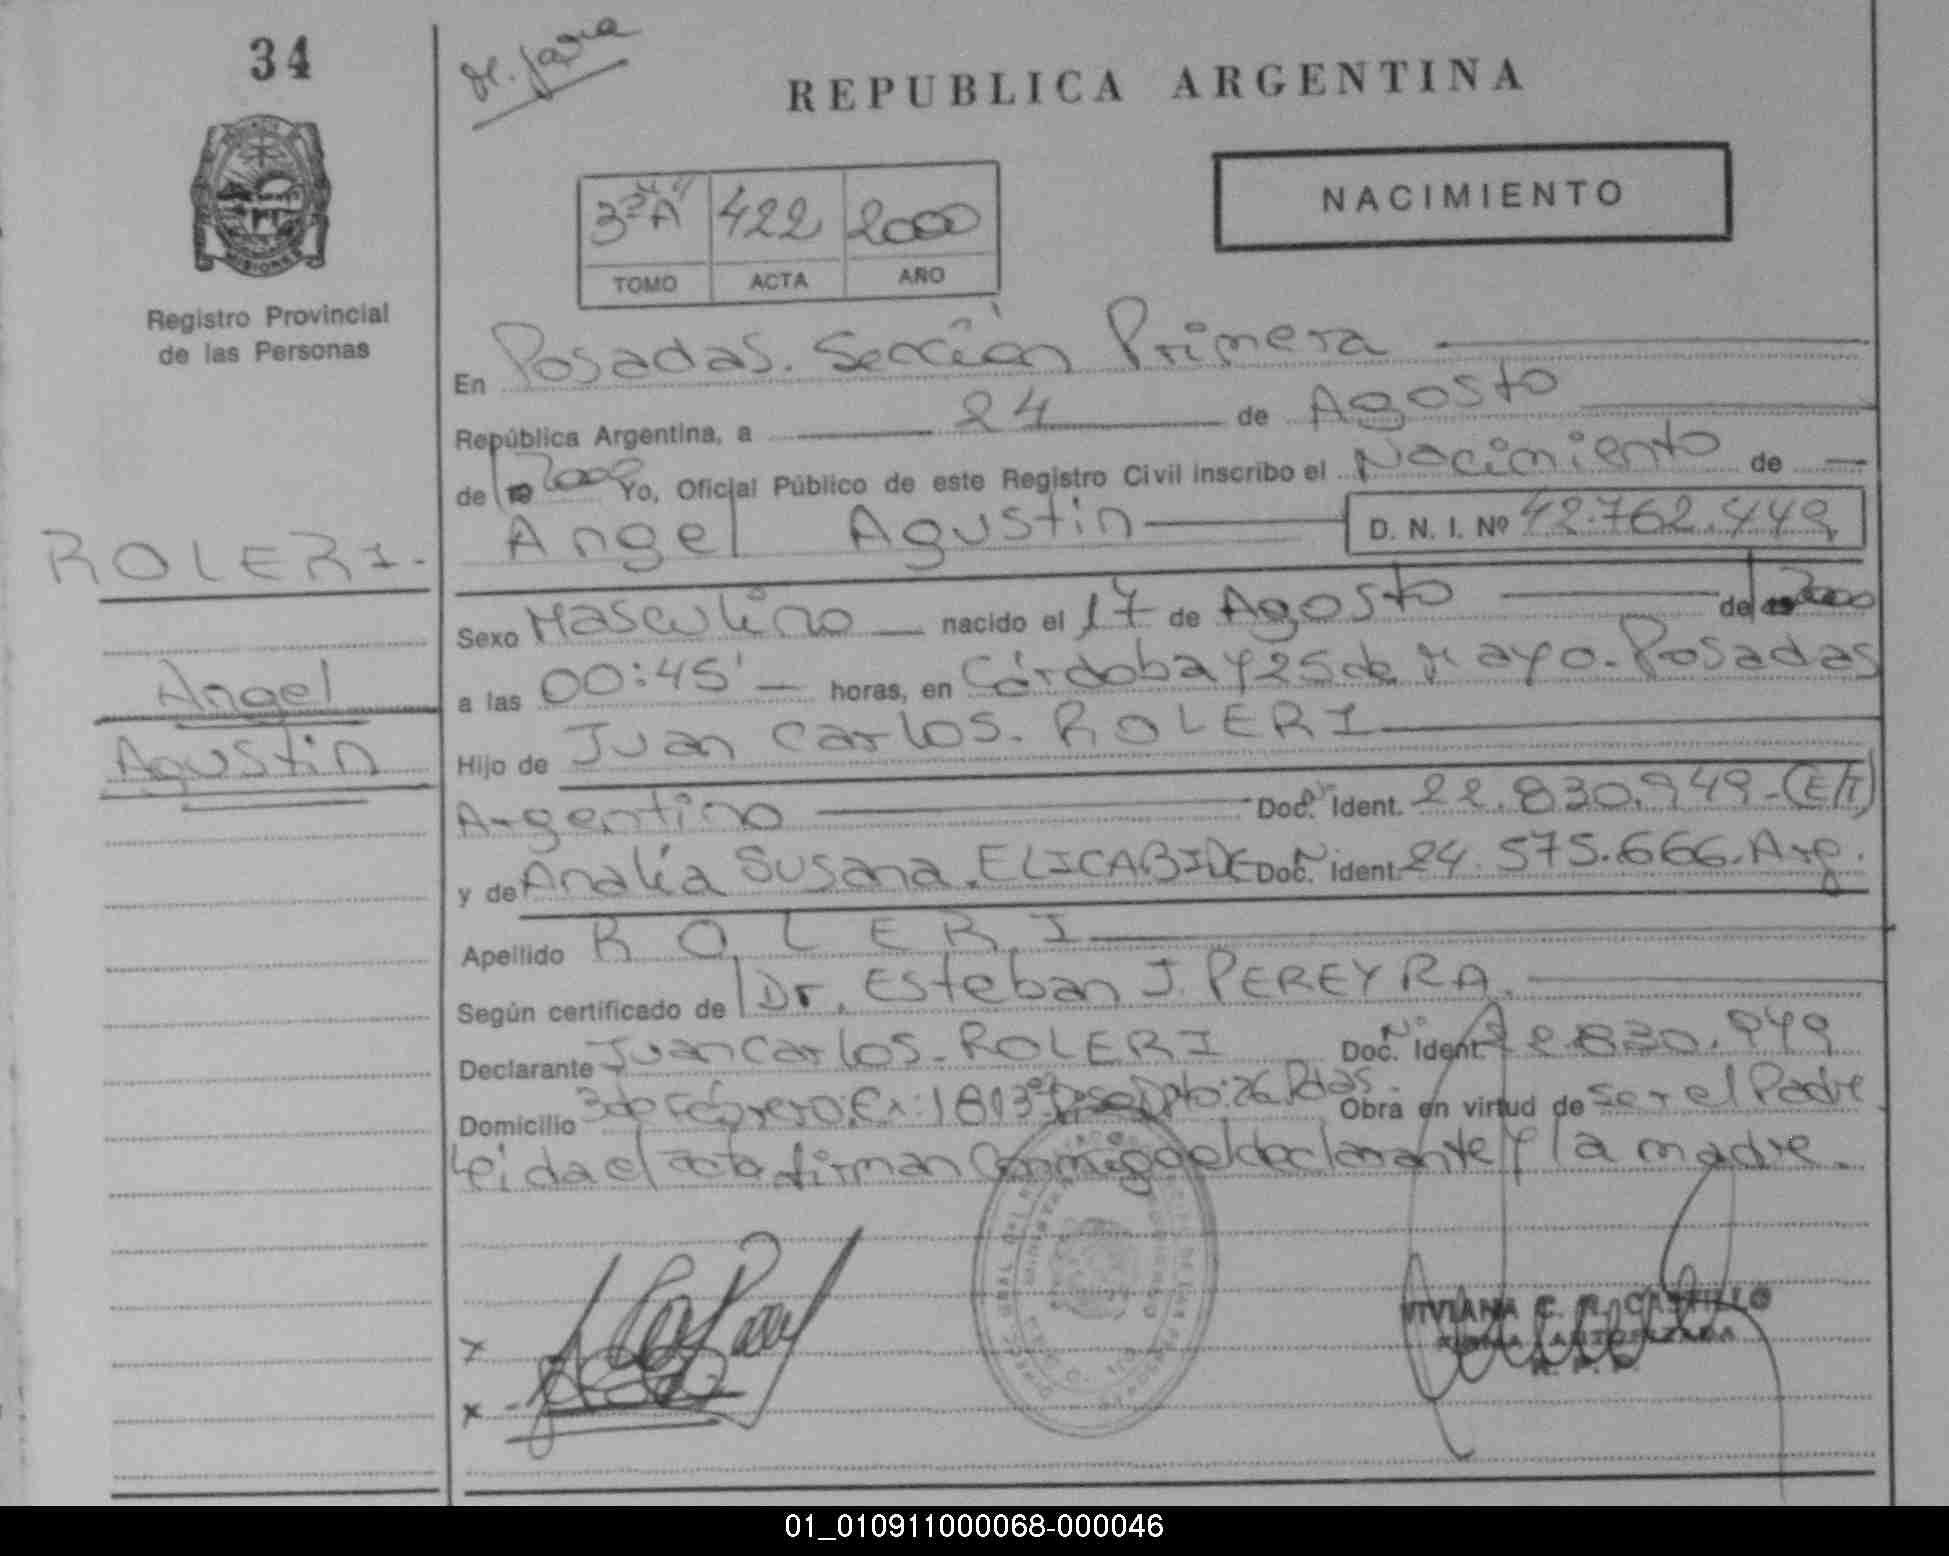 34
REPUBLICA ARGENTINA
NACIMIENTO
3º "A" 422 2000
TOMO ACTA AÑO
MISIONES
Registro Provincial
de las Personas
En Posadas. Sección Primera
República Argentina, a 24 de Agosto
de 2000 Yo, Oficial Público de este Registro Civil inscribo el Nacimiento de
Angel Agustin D. N. I. Nº 42.762.449
ROLERI.
Angel
Agustin
Sexo Masculino nacido el 17 de Agosto de 2000
a las 00:45' horas, en Córdoba y 25 de Mayo. Posadas
Hijo de Juan Carlos. ROLERI
Argentino Doc. Nº Ident. 22.830.949-(E/T)
y de Analía Susana. ELICABIDE Doc. Nº Ident. 24.575.666. Arg.
Apellido ROLERI
Según certificado de Dr. Esteban J. PEREYRA.
Declarante Juan Carlos. ROLERI Doc. Nº Ident. 22.830.949
Domicilio 3 de Febrero Dpto: 26 Pdas. Obra en virtud de ser el Padre
Leida el acta firman Conmigo el declarante y la madre.
x
x
VIVIANA C. R. CASTILLO
FIRMA AUTORIZADA
01_010911000068-000046